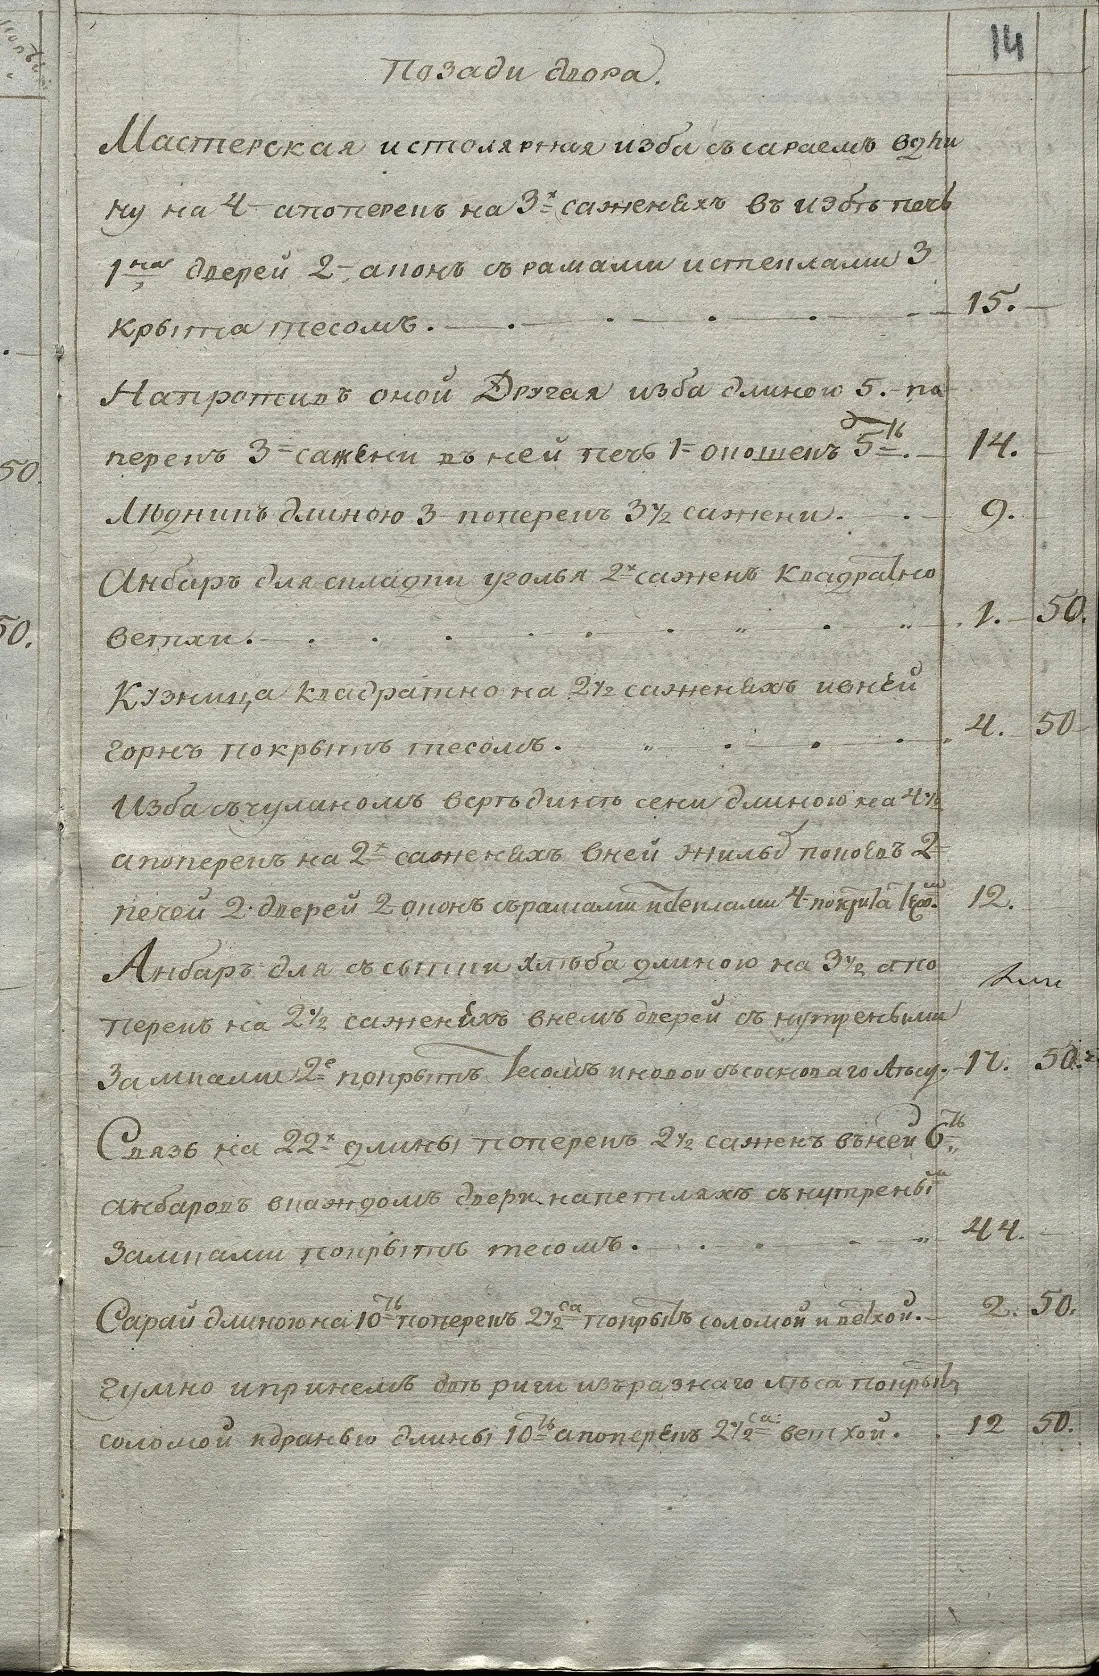 14
Позади двора.
Мастерская истолярная изба съсараемъ вдли
ну на 4 апоперекъ на 3х саженяхъ въ избѣ печь
1на дверей 2 аконъ съ рамами истеклами 3
крыта тесомъ. 15.
Напротивъ оной Другая изба длиною 5. по
перекъ 3 сажени въ ней печь 1 окошекъ 5ть. 14.
Лѣдникъ длиною 3 поперекъ 3 1/2 сажени. 9.
Анбаръ для складки уголья 2х саженъ квадратно
ветхи. 1. 50.
Кузница квадратно на 2 1/2 саженяхъ ивней
горнъ покрытъ тесомъ. 4. 50
Изба съчуланомъ всредине сени длиною на 4 1/2
апоперекъ на 2х саженяхъ вней жилыхъ покоевъ 2
печей 2. дверей 2 аконъ съ рамами истеклами 4 покрыта тесом. 12.
Анбаръ для съсыпки хлѣба длиною на 3 1/2 апо
перекъ на 2 1/2 саженяхъ внемъ дверей съ нутреными
Замками 2е покрытъ тесомъ иновой съсосноваго лѣсу. 17. 50.
Связь на 22х длины поперекъ 2 1/2 саженъ въней 6ть
анбаровъ вкаждомъ двери напетляхъ сънутреными
Замками покрытъ тесомъ. 44.
Сарай длиною на 10ть поперекъ 2 1/2 са покрытъ соломой иветхой. 2. 50.
гумно ипринемъ двѣ риги изъразнаго лѣса покрыта
соломой идранью длины 10ть апоперекъ 2 1/2 са: ветхой. 12 50.
50.
50.